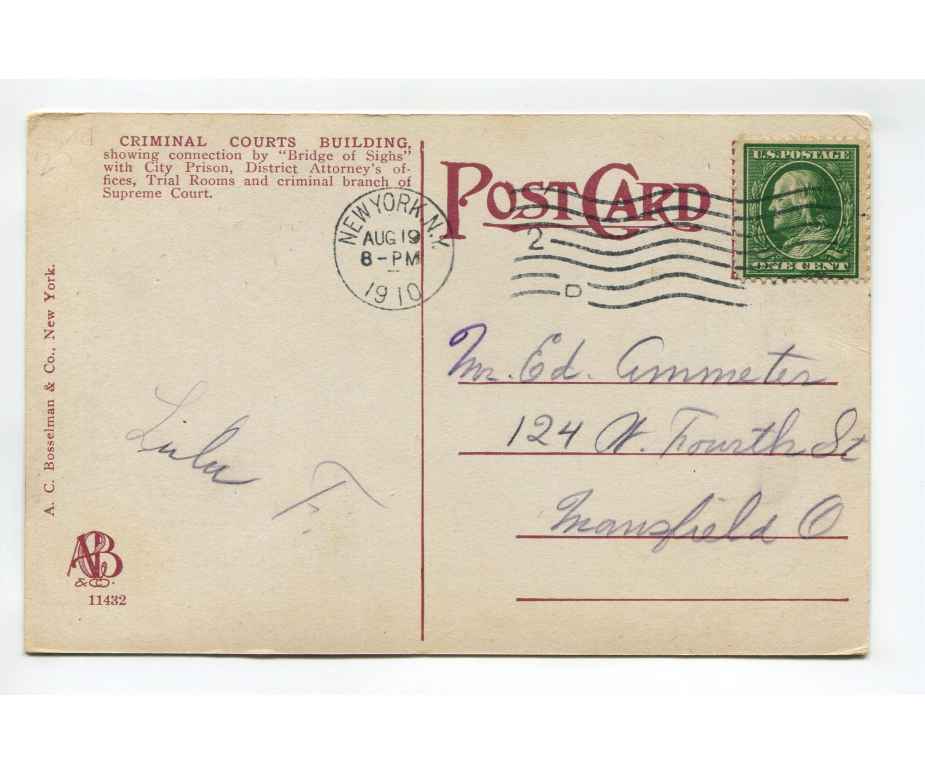 CRIMINAL COURTS BUILDING,
showing connection by "Bridge of Sighs"
with City Prison, District Attorney's of-
fices, Trial Rooms and criminal branch of
Supreme Court.
POST CARD
U.S. POSTAGE
ONE CENT
NEW YORK, N.Y.
AUG 19
8-PM
1910
2
D
A. C. Bosselman & Co., New York.
Mr. Ed. Ammeter
124 W. Fourth St
Mansfield O
Lulu F.
ACB
& CO.
11432